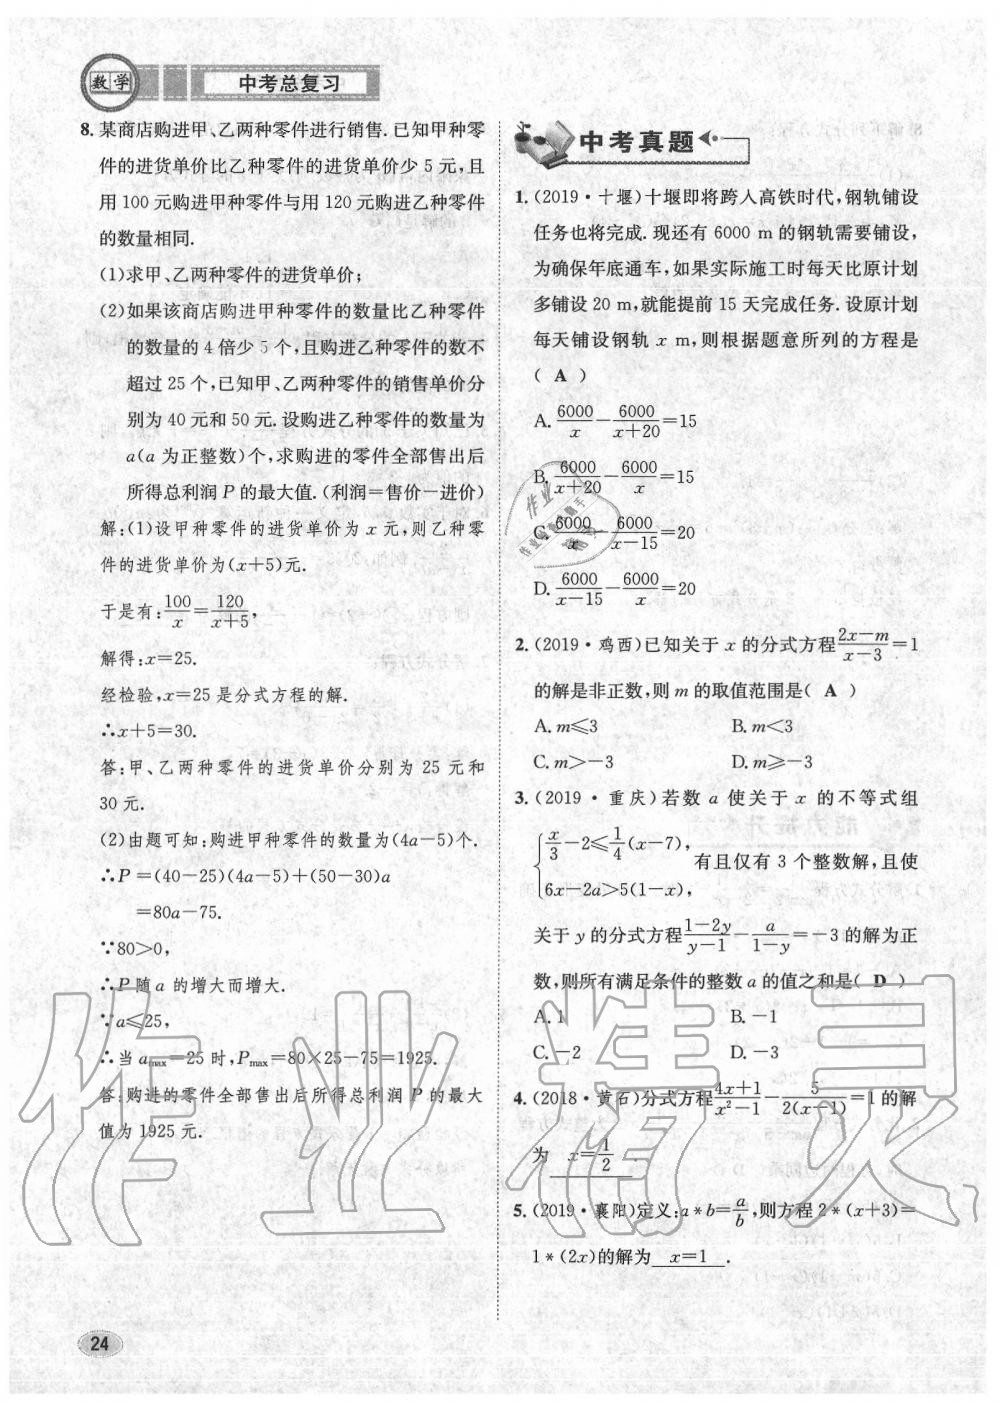 数学
中考总复习
8. 某商店购进甲、乙两种零件进行销售. 已知甲种零
件的进货单价比乙种零件的进货单价少 5 元,且
用 100 元购进甲种零件与用 120 元购进乙种零件
的数量相同.
(1)求甲、乙两种零件的进货单价;
(2)如果该商店购进甲种零件的数量比乙种零件
的数量的 4 倍少 5 个,且购进乙种零件的数不
超过 25 个,已知甲、乙两种零件的销售单价分
别为 40 元和 50 元. 设购进乙种零件的数量为
a(a 为正整数)个,求购进的零件全部售出后
所得总利润 P 的最大值.(利润=售价-进价)
解:(1)设甲种零件的进货单价为 x 元,则乙种零
件的进货单价为(x+5)元.
于是有:100/x=120/(x+5),
解得:x=25.
经检验,x=25 是分式方程的解.
∴x+5=30.
答:甲、乙两种零件的进货单价分别为 25 元和
30 元.
(2)由题可知:购进甲种零件的数量为(4a-5)个.
∴P=(40-25)(4a-5)+(50-30)a
=80a-75.
∵80>0,
∴P 随 a 的增大而增大.
∵a⩽25,
∴当 a_max=25 时,P_max=80×25-75=1925.
答:购进的零件全部售出后所得总利润 P 的最大
值为 1925 元.
中考真题
1. (2019·十堰)十堰即将跨入高铁时代,钢轨铺设
任务也将完成. 现还有 6000 m 的钢轨需要铺设,
为确保年底通车,如果实际施工时每天比原计划
多铺设 20 m,就能提前 15 天完成任务. 设原计划
每天铺设钢轨 x m,则根据题意所列的方程是
( A )
A. 6000/x-6000/(x+20)=15
B. 6000/(x+20)-6000/x=15
C. 6000/x-6000/(x-15)=20
D. 6000/(x-15)-6000/x=20
2. (2019·鸡西)已知关于 x 的分式方程(2x-m)/(x-3)=1
的解是非正数,则 m 的取值范围是( A )
A. m⩽3 B. m<3
C. m>-3 D. m⩾-3
3. (2019·重庆)若数 a 使关于 x 的不等式组
{x/3-2⩽1/4(x-7),
6x-2a>5(1-x), 有且仅有 3 个整数解,且使
关于 y 的分式方程(1-2y)/(y-1)-a/(1-y)=-3 的解为正
数,则所有满足条件的整数 a 的值之和是( D )
A. 1 B. -1
C. -2 D. -3
4. (2018·黄石)分式方程(4x+1)/(x²-1)-5/(2(x-1))=1 的解
为 x=1/2 .
5. (2019·襄阳)定义:a*b=a/b,则方程 2*(x+3)=
1*(2x)的解为 x=1 .
24
作业精灵